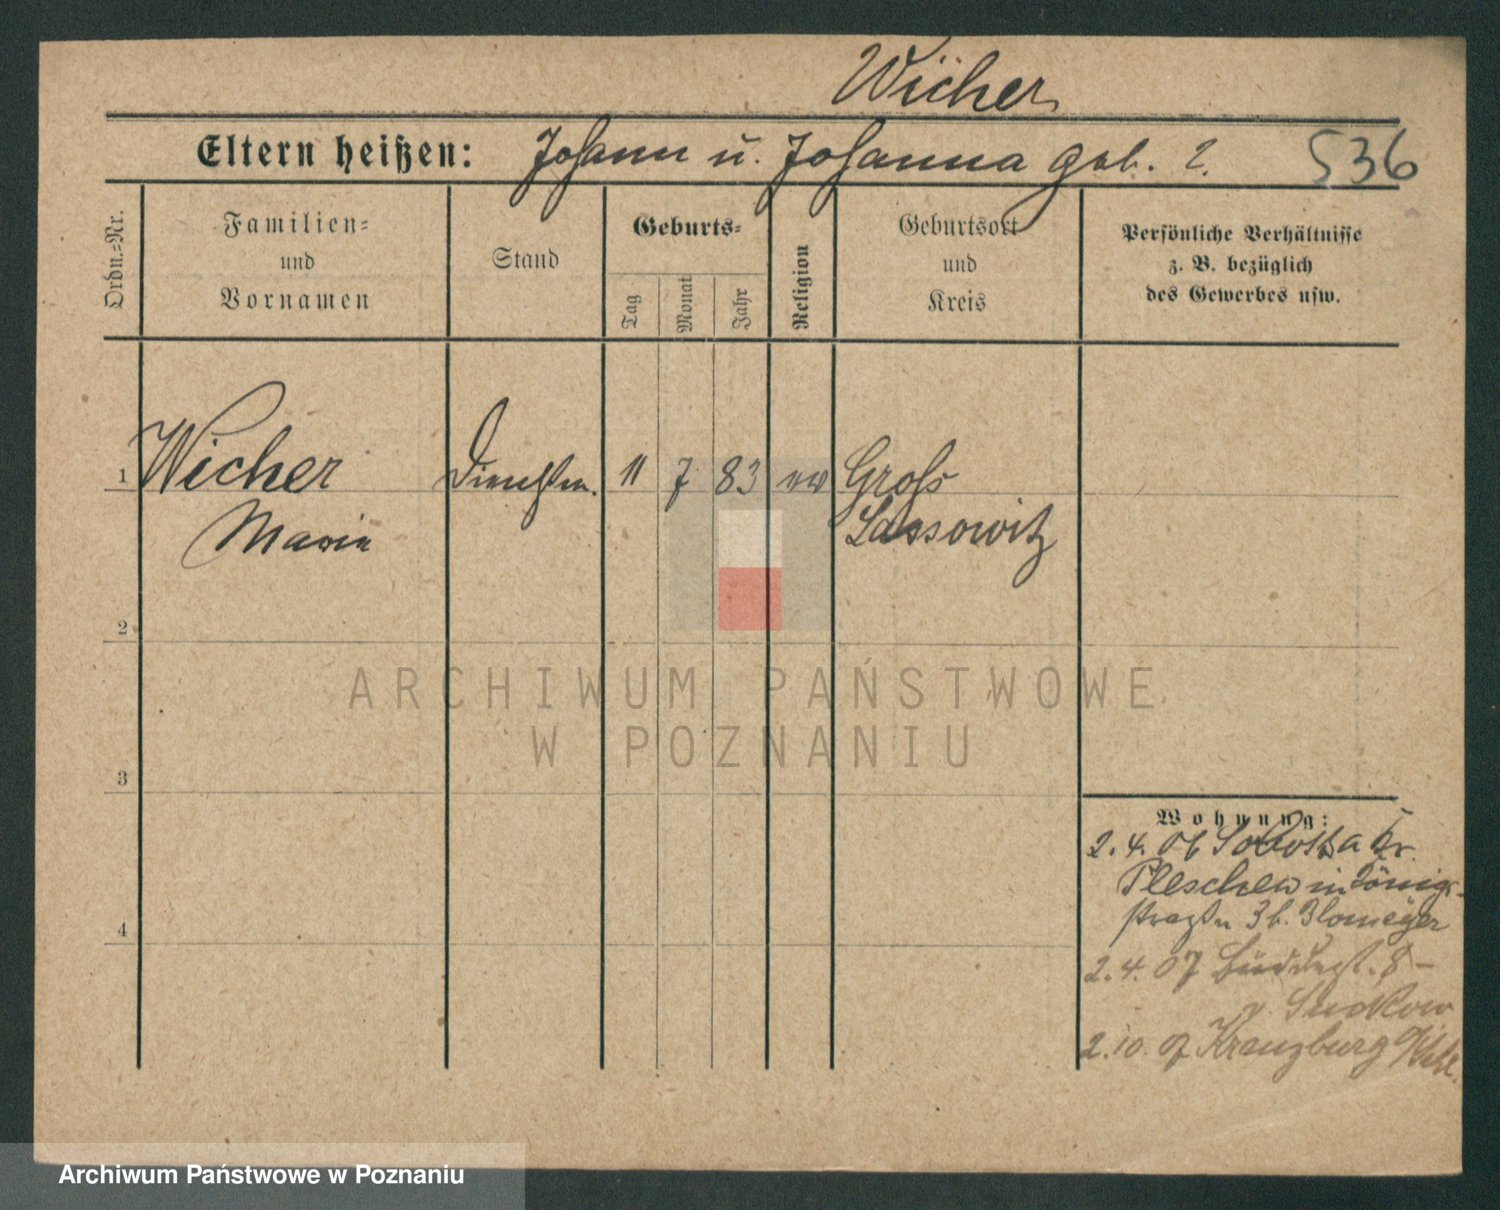 Wicher
Eltern heißen: Johann u. Johanna geb. ?. 536
Ordn.=Nr.
Familien=
und
Vornamen
Stand
Geburts=
Tag
Monat
Jahr
Religion
Geburtsort
und
Kreis
Persönliche Verhältnisse
z. B. bezüglich
des Gewerbes usw.
1 Wicher Dienstm. 11 7 83 ev Groß
Marie Lassowitz
2
ARCHIWUM PAŃSTWOWE
W POZNANIU
3
Wohnung:
2. 4. 06 Sobotka Kr.
Pleschen in Königs-
straße 3 b. Blomeyer
4
2. 4. 07 8 -
v. Suckow
2. 10. 07 Kreuzburg
Archiwum Państwowe w Poznaniu